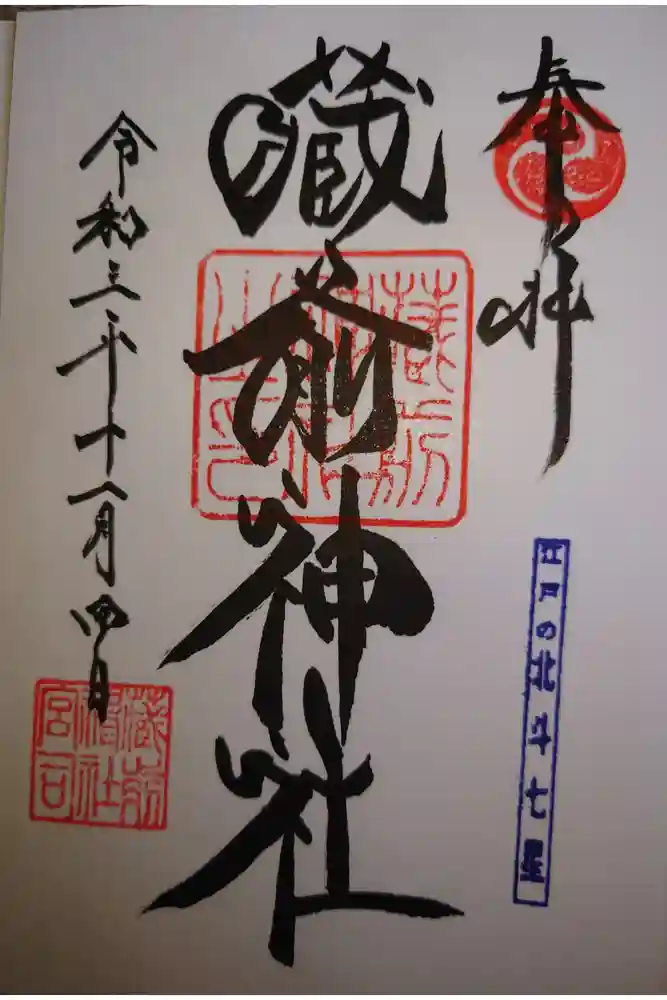 奉拝
江戸の北斗七星
蔵前神社
蔵前神社之印
令和三年十月四日
蔵前神社宮司